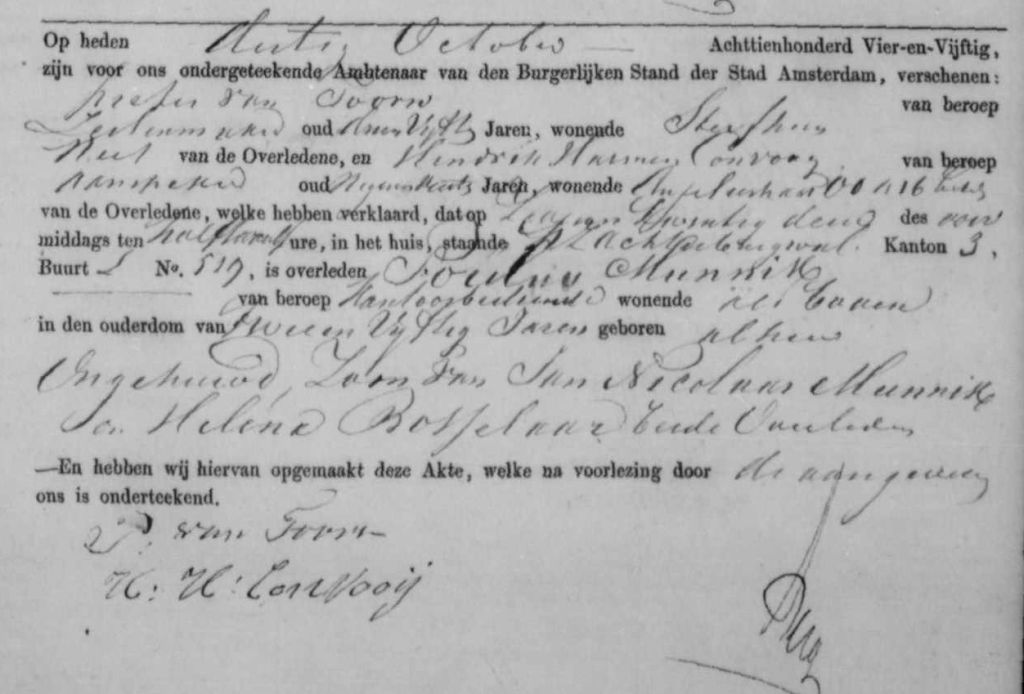 Op heden dertig October Achttienhonderd Vier-en-Vijftig,
zijn voor ons ondergeteekende Ambtenaar van den Burgerlijken Stand der Stad Amsterdam, verschenen:
Pieter van Toorn van beroep
oud Vijftig Jaren, wonende Sterfhuis
Neef van de Overledene, en Hendrik Harmen Convooy van beroep
aanspreker oud Negenendertig Jaren, wonende Angelierstraat OO N 16
van de Overledene, welke hebben verklaard, dat op Zevenentwintig dezer des voor
middags ten half twaalf ure, in het huis, staande Achterburgwal. Kanton 3,
Buurt L No. 519, is overleden Munnik
van beroep Kantoorbediende wonende als boven
in den ouderdom van Tweeen Vijftig Jaren geboren alhier
Ongehuwd, Zoon van Jan Nicolaas Munnik
en Helena Bosselaar beide Overleden
—En hebben wij hiervan opgemaakt deze Akte, welke na voorlezing door de aangevers
ons is onderteekend.
P. van Toorn
H: H: Convooij